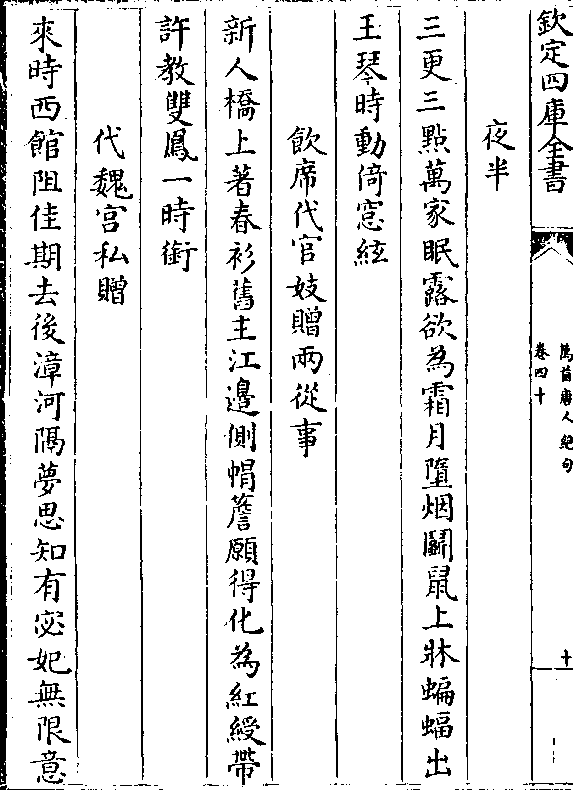 欽定四庫全書
萬首唐人絶句
卷四十
十
夜半
三更三點萬家眠露欲為霜月墮烟鬬鼠上牀蝙蝠出
王琴時動倚窓絃
飲席代官妓贈兩從事
新人橋上著春衫舊主江邊側帽簷願得化為紅綬帶
許教雙鳳一時銜
代魏宫私贈
來時西館阻佳期去後漳河隔夢思知有宓妃無限意